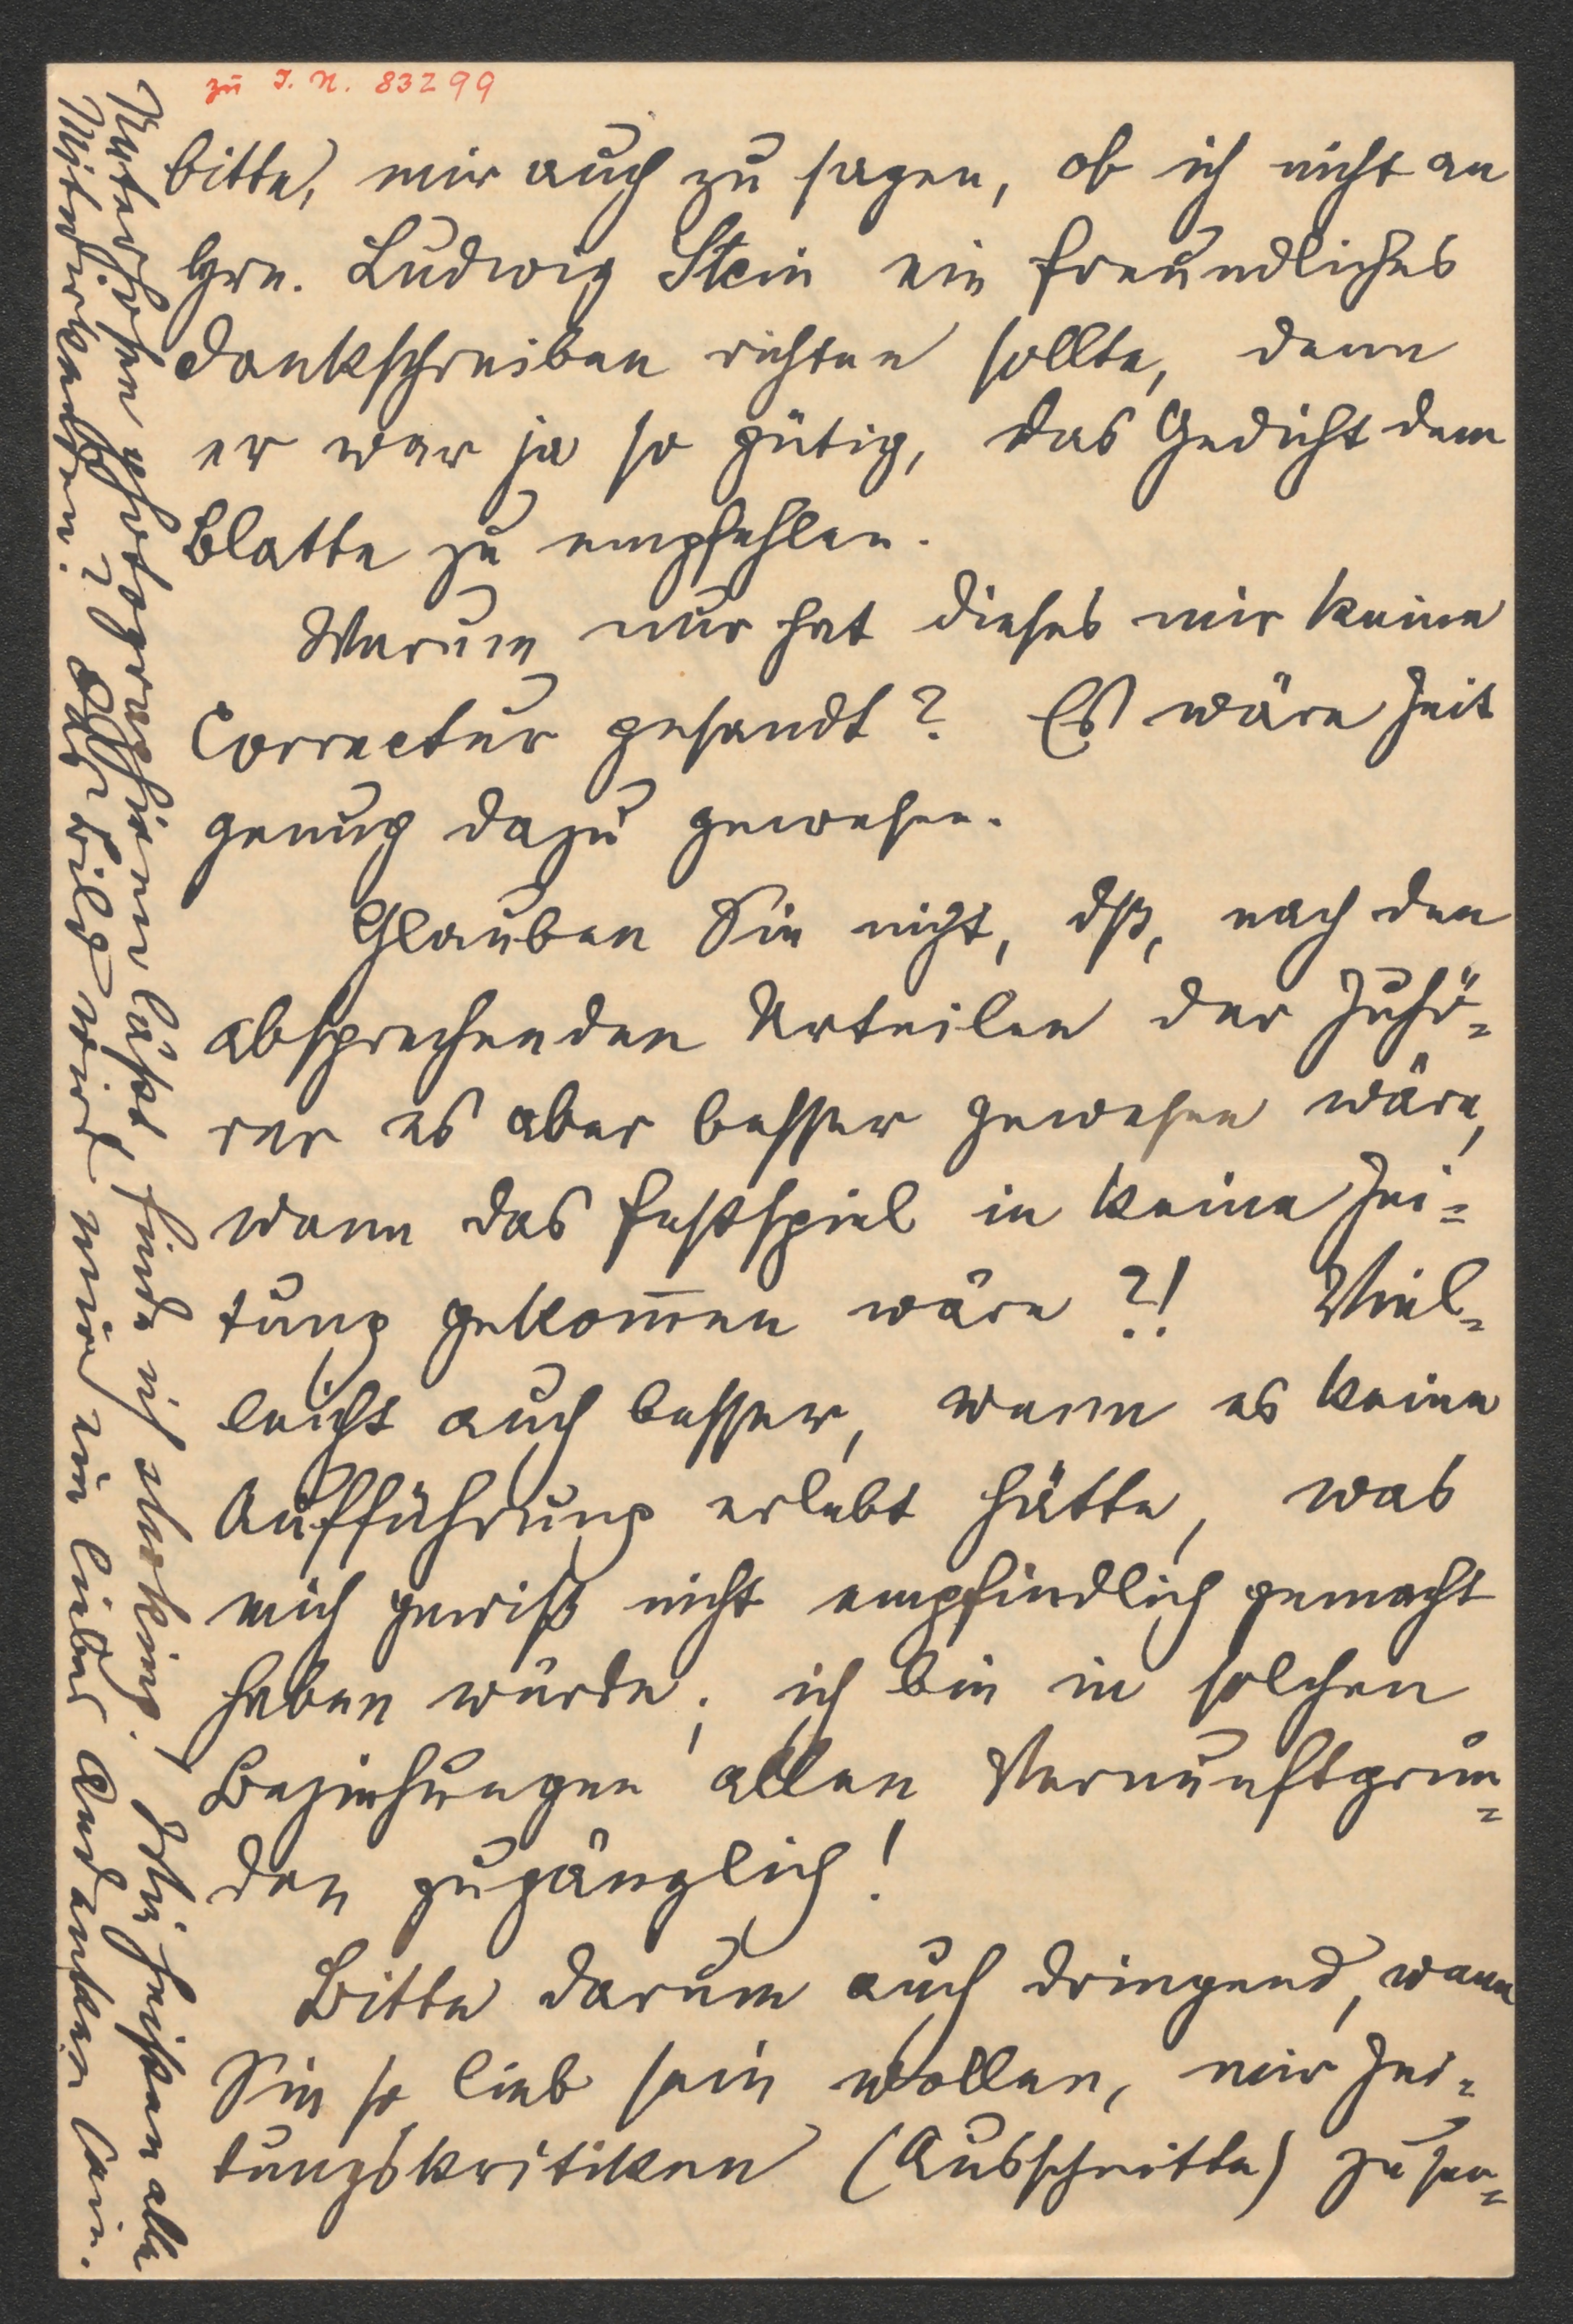 zu I. N. 83299
bitte, mir auch zu sagen, ob ich nicht an
Hrn. Ludwig Stein ein freundliches
Dankschreiben richten sollte, denn
er war ja so gütig, das Gedicht dem
Blatte zu empfehlen.
Warum nur hat dieses mir keine
Correctur gesandt? Es wäre Zeit
genug dazu gewesen.
Glauben Sie nicht, dß, nach den
absprechenden Urteilen der Zuhö=
rer es aber besser gewesen wäre,
wenn das Festspiel in keine Zei=
tung gekom̅en wäre?! Viel=
leicht auch besser, wenn es keine
Aufführung erlebt hätte, was
mich gewiß nicht empfindlich gemacht
haben würde; ich bin in solchen
Beziehungen allen Vernunftgrün=
den zugänglich!
Bitte darum auch dringend, wenn
Sie so lieb sein wollen, mir Zei=
tungskritiken (Ausschnitte) zu sen=
photographieren läßt, finde ich. Wie heißen alle
Mitwirkenden? Das Bild wird mir ein liebes Andenken sein.